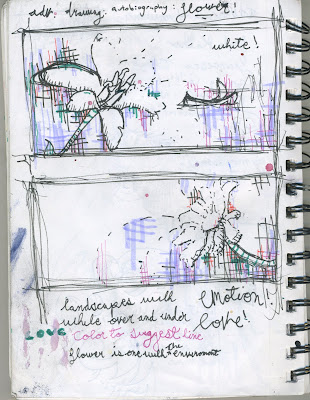 drawing: autobiography: flower!
white!
landscapes with
white over and under
LOVE Color to suggest line
flower is one with the enviroment
emotion!
Love!